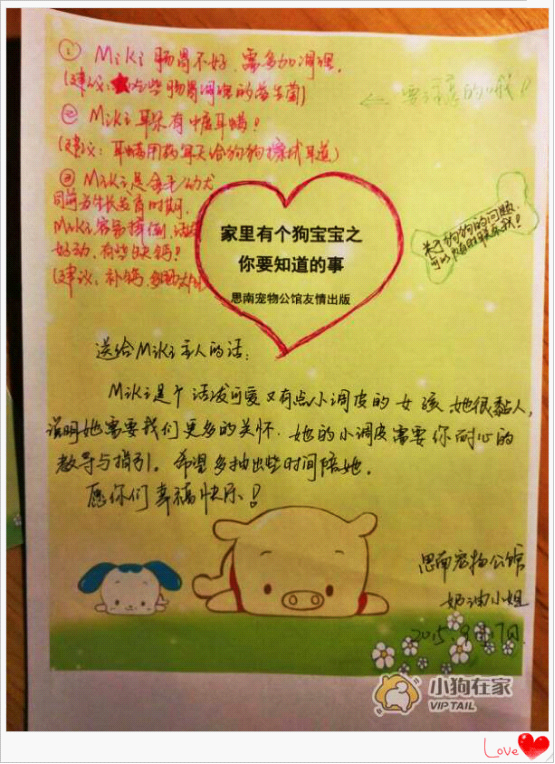 ① Miki 肠胃不好,需多加调理.
(建议:吃些肠胃调理的益生菌)
← 要注意的哦!
② Miki 耳朵有中度耳螨!
(建议:耳螨用药每天给狗狗擦拭耳道)
③ Miki是金毛幼犬
目前为生长发育时期.
Miki容易摔倒,活泼
好动,有些缺钙!
(建议:补钙,
关于狗狗的问题,
可以随时联系我!
家里有个狗宝宝之
你要知道的事
思南宠物公馆友情出版
送给Miki主人的话:
Miki是个活泼可爱又有点小调皮的女孩,她很黏人,
说明她需要我们更多的关怀.她的小调皮需要你耐心的
教导与指引。希望多抽出些时间陪她。
愿你们幸福快乐!
思南宠物公馆
奶油小姐
2015.9月7日
小狗在家
VIP TAIL
Love